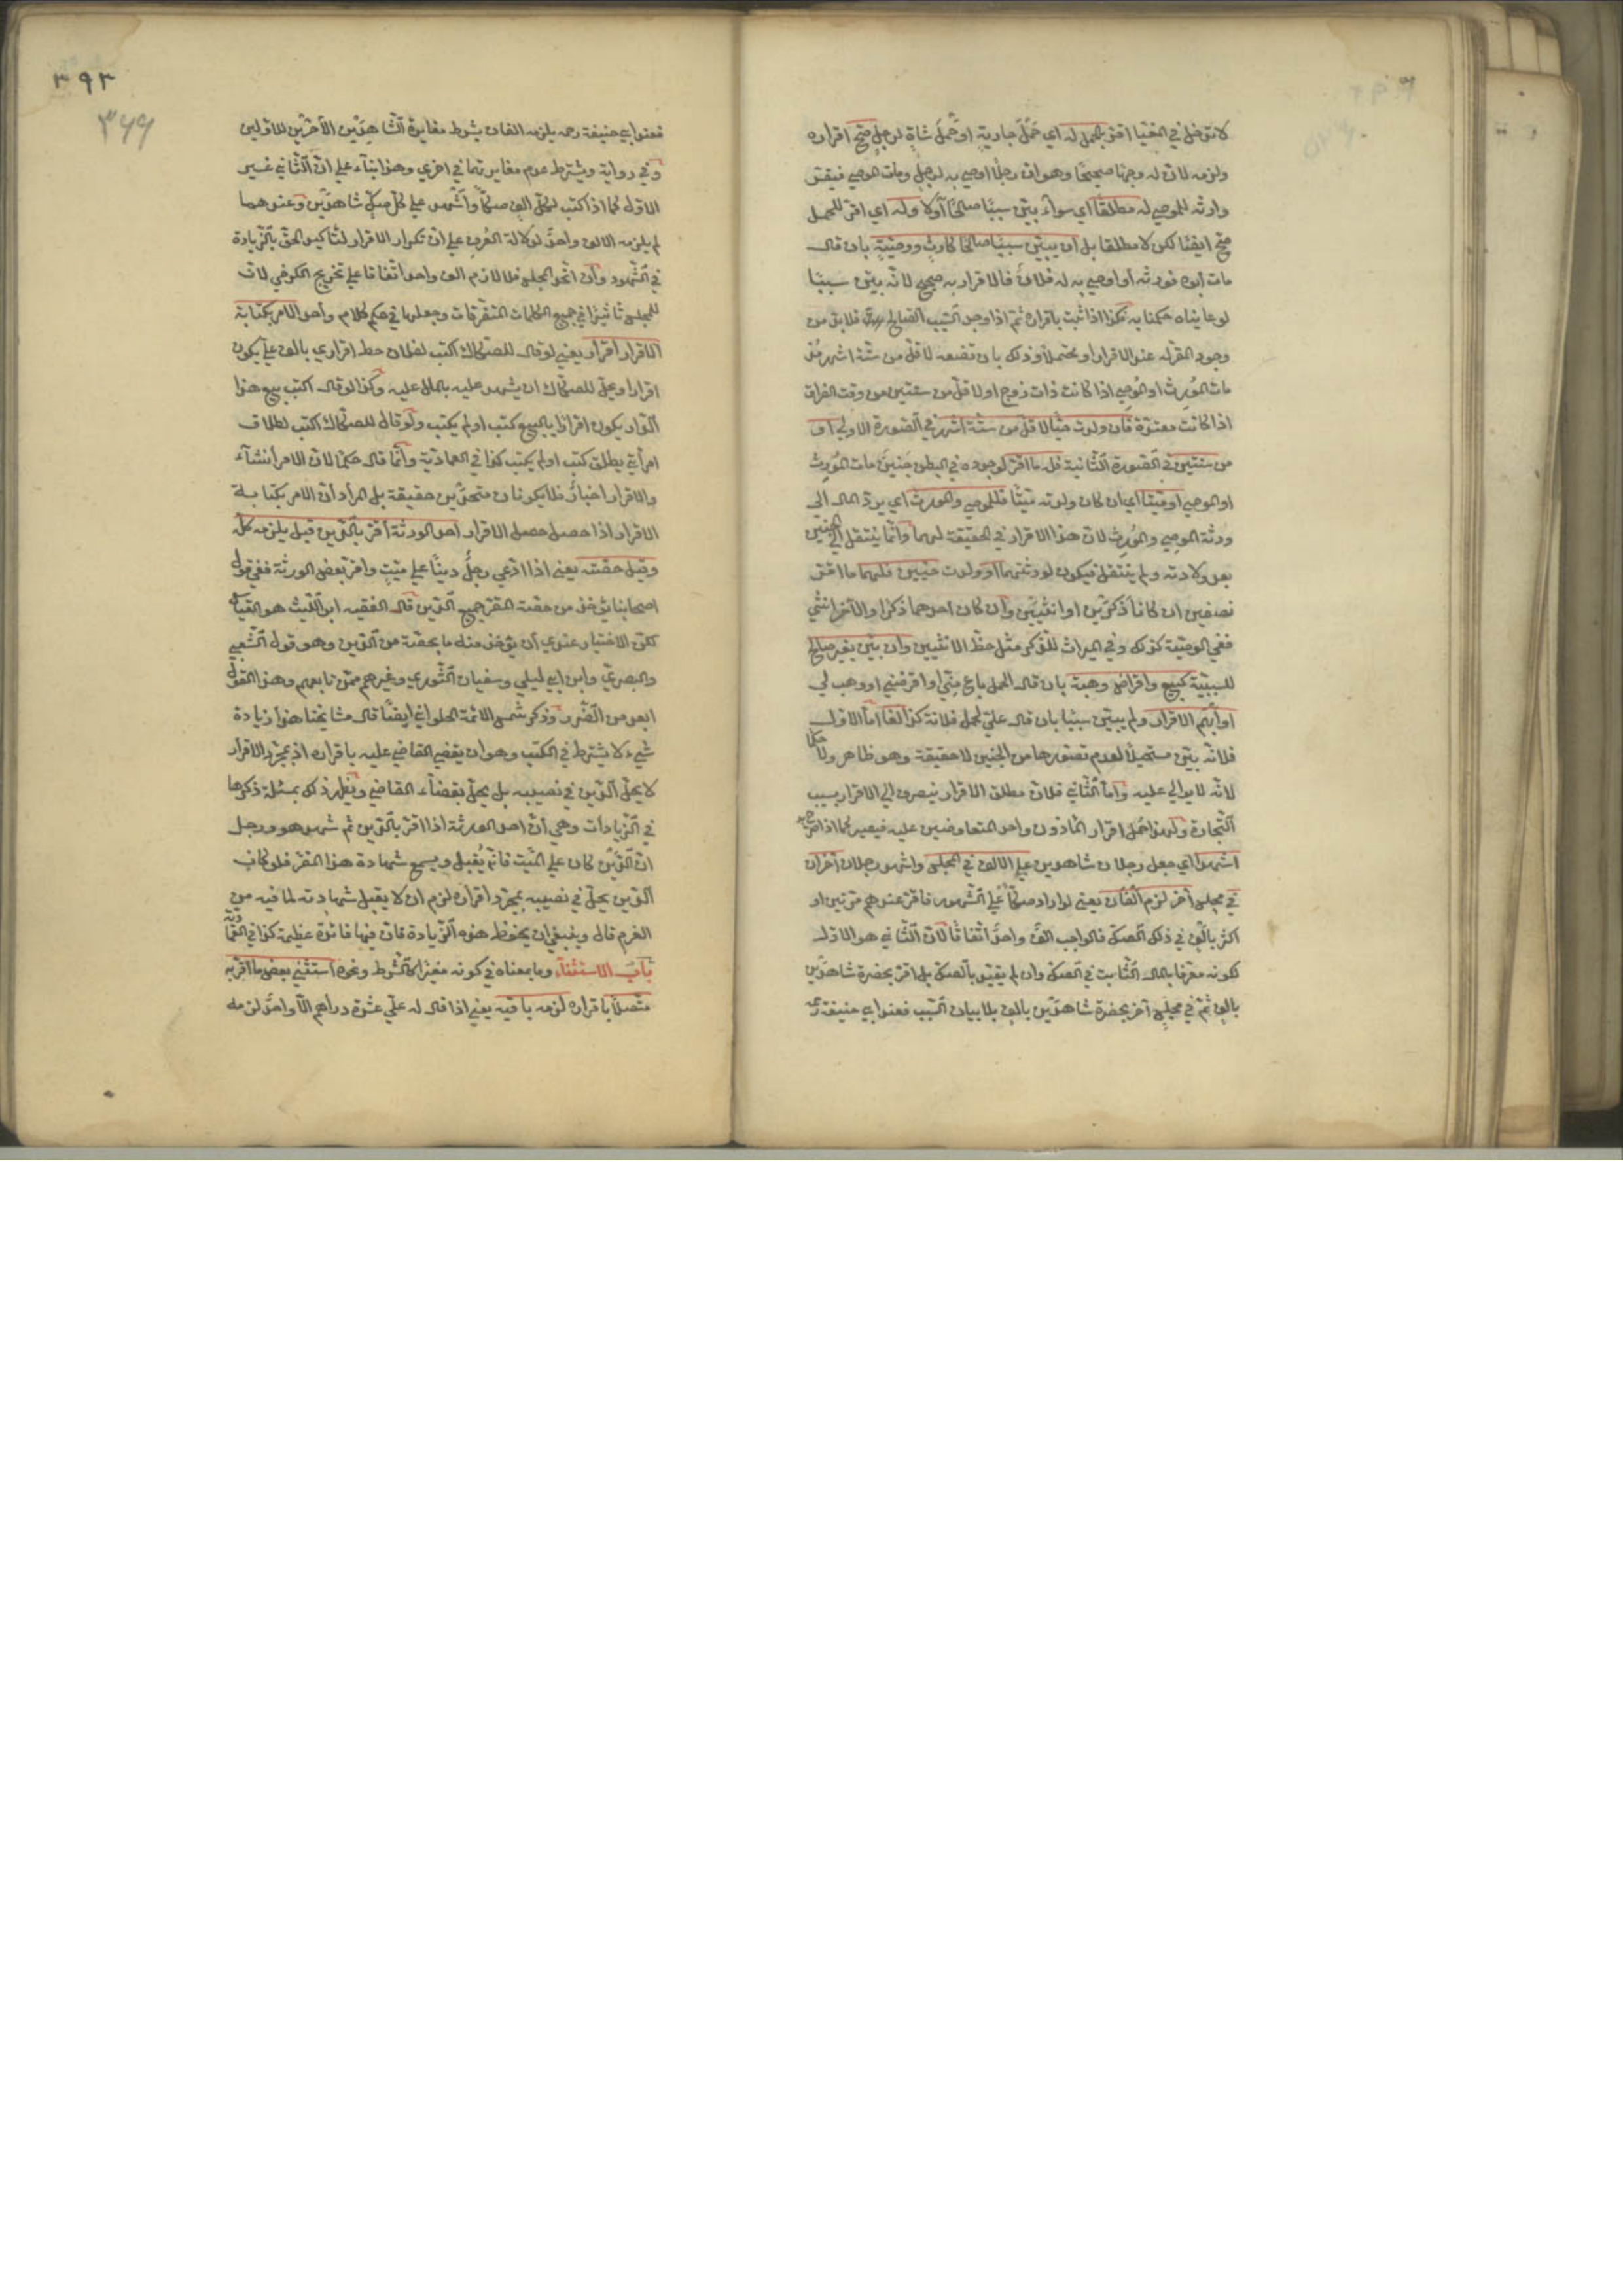 لا تدخل في الفتيا اقر بالحمل له اي حَمْلِ جاريةٍ او حَمْلِ شاةٍ لرجلٍ صحّ اقراره
ولزمه لان له وجهًا صحيحًا وهو ان رجلًا اوصي به لرجلٍ ومات الموصي فيقر
وارثه للموصي له مطلقًا اي سواء بيّن سببًا صالحًا أولا وله اي اقر للحمل
صح ايضًا لكن لا مطلقا بل ان يبيّن سببًا صالحًا كارثٍ ووصيّةٍ بان قال
مات ابوه فورثه أو اوصي به له فلانٌ فالاقرار به صحيح لانّه بيّن سببًا
لو عايناه حكمنا به فكذا اذا ثبت باقراره ثمّ اذا وجد السّبب الصّالح فلا بدّ من
وجود المقرّله عند الاقرار او محتملًا وذلك بان تضعه لاقلّ من ستّة اشهر مُذ
مات المُورِث او الموصي اذا كانت ذات زوج او لاقلّ من سنتين من وقت الفراق
اذا كانت معتدّة فان ولدت حيًّا لاقلّ من ستّة اشهر في الصّورة الاولي او
من سنتين في الصّورة الثّانية فله ما اقرّ لوجوده في البطن حينَ مات المُورِث
او الموصي او ميّتا اي ان كان ولدته ميّتًا فللموصي والمورث اي يردّ المال الي
ورثة الموصي والمُورِث لان هذا الاقرار في الحقيقة لهما وانّما ينتقل الي الجنين
بعد ولادته ولم ينتقل فيكون لورثتهما او ولدت حيّين فلهما ما اقرّ
نصفين ان كانا ذَكَرَيْن او انثيَيْن وان كان احدهما ذَكَرًا والآخر انثي
ففي الوصيّة كذلك وفي الميراث للذّكر مثل حظّ الانثيين وان بيّن بغير صالحٍ
للسببيّة كبيع واقراض وهبة بان قال الحمل باع منّي او اقرضني او وهب لي
او أبهم الاقرار ولم يبيّن سببًا بان قال عليّ لحمل فلانة كذا لغا امّا الاوّل
فلانّه بيّن مستحيلًا لعدم تصوّرها من الجنين لا حقيقة وهو ظاهر ولا حكمًا
لانّه لا يوالي عليه وامّا الثّاني فلان مطلق الاقرار ينصرف الي الاقرار بسبب
التّجارة ولهذا حُمل اقرار المأذون واحد المتفاوضين عليه فيصير كما اذا صرّح به
اشهدوا اي جعل رجلان شاهدين علي الالف في مجلس واشهد رجلان آخران
في مجلس آخر لزم الفان يعني لو ادار صكًّا علي الشّهود فاقرّ عندهم مرّتين او
اكثر بالفٍ في ذلك الصّكّ فالواجب الفٌ واحدٌ اتفاقًا لان الثّاني هو الاوّل
لكونه معرّفا بالمال الثّابت في الصكّ وان لم يقيّد بالصّكّ بل اقرّ بحضرة شاهدَيْن
بالفٍ ثمّ في مجلسٍ آخر بحضرة شاهدَيْن بالفٍ بلا بيان السّبب فعند ابي حنيفة رحمه
٣٩٣
٣٤٩
فعند ابي حنيفة رحمه يلزمه الفان بشرط مغايرة الشّاهدَيْن الآخرَيْن للاوّلين
وفي رواية ويشترط عدم مغايرتهما في اخري وهذا بناء علي انّ الثّاني غير
الاوّل كما اذا كتب لكلّ الفٍ صكًّا وأشهد علي كلّ صكٍّ شاهدَيْن وعندهما
لم يلزمه الا الف واحدٌ لدلالة العُرفِ علي انّ تكرار الاقرار لتأكيد الحقّ بالزّيادة
في الشّهود وان اتّحد المجلس فاللازم الف واحد اتّفاقا علي تخريج الكرخي لان
للمجلس تأثيرًا في جميع الكلمات المتفرّقات وجعلها في حكم كلام واحد الامر بكتابة
الاقرار اقرار يعني لو قال للصكّاك اكتب لفلان خط اقراري بالف عليّ يكون
اقرارا ويحلّ للصكّاك ان يشهد عليه بالمال عليه وكذا لو قال اكتب بيع هذا
الدّار يكون اقرارًا بالبيع كتب او لم يكتب ولو قال للصكّاك اكتب لطلاق
امرأتي يطلق كتب او لم يكتب كذا في العماديّة وانّما قال حكمًا لان الامر انشآء
والاقرار اخبارٌ فلا يكونان متحدَيْن حقيقة بل المراد انّ الامر بكتابة
الاقرار اذا حصل حصل الاقرار احد الورثة أقرّ بالدّين قيل يلزمه كلّه
وقيل حصّته يعني اذا ادّعي رجلٌ دينًا علي ميّتٍ واقر بعض الورثة ففي قول
اصحابنا يؤخذ من حصّة المقرّ جميع الدّين قال الفقيه ابو اللّيث هو القياس
لكنّ الاختيار عندي أن يؤخذ منه ما يخصّه من الدّين وهو قول الشّعبي
والبصري وابن ابي ليلي وسفيان الثّوري وغيرهم ممّن تابعهم وهذا القول
ابعد من الضّرر وذكر شمس الائمّة الحلواني ايضًا قال مشايخنا هنا زيادة
شيء لا يشترط في الكتب وهو ان يقضي القاضي عليه باقراره اذ بمجرّد الاقرار
لا يحلّ الدّين في نصيبه بل يحلّ بقضآء القاضي ويظهر ذلك بمسئلة ذكرها
في الزّيادات وهي أنّ احد الورثة اذا اقرّ بالدّين ثم شهد هو ورجل
انّ الدَّيْنَ كان علي الميّت فانّه يُقبل ويسمع شهادة هذا المقرّ فلو كان
الدّين يحلّ في نصيبه بمجرّد اقراره لزم ان لا يقبل شهادته لما فيه من
الغرم قال وينبغي ان يحفظ هذه الزّيادة فان فيها فائدة عظيمة كذا في العماديّة
بابُ الاستثنآء وما بمعناه في كونه مغيّرا كالشّرط ونحوه استثني بعض ما اقرّ به
متّصلًا باقراره لزمه باقيه يعني اذا قال له عليّ عشرة دراهم الّا واحدًا لزمه